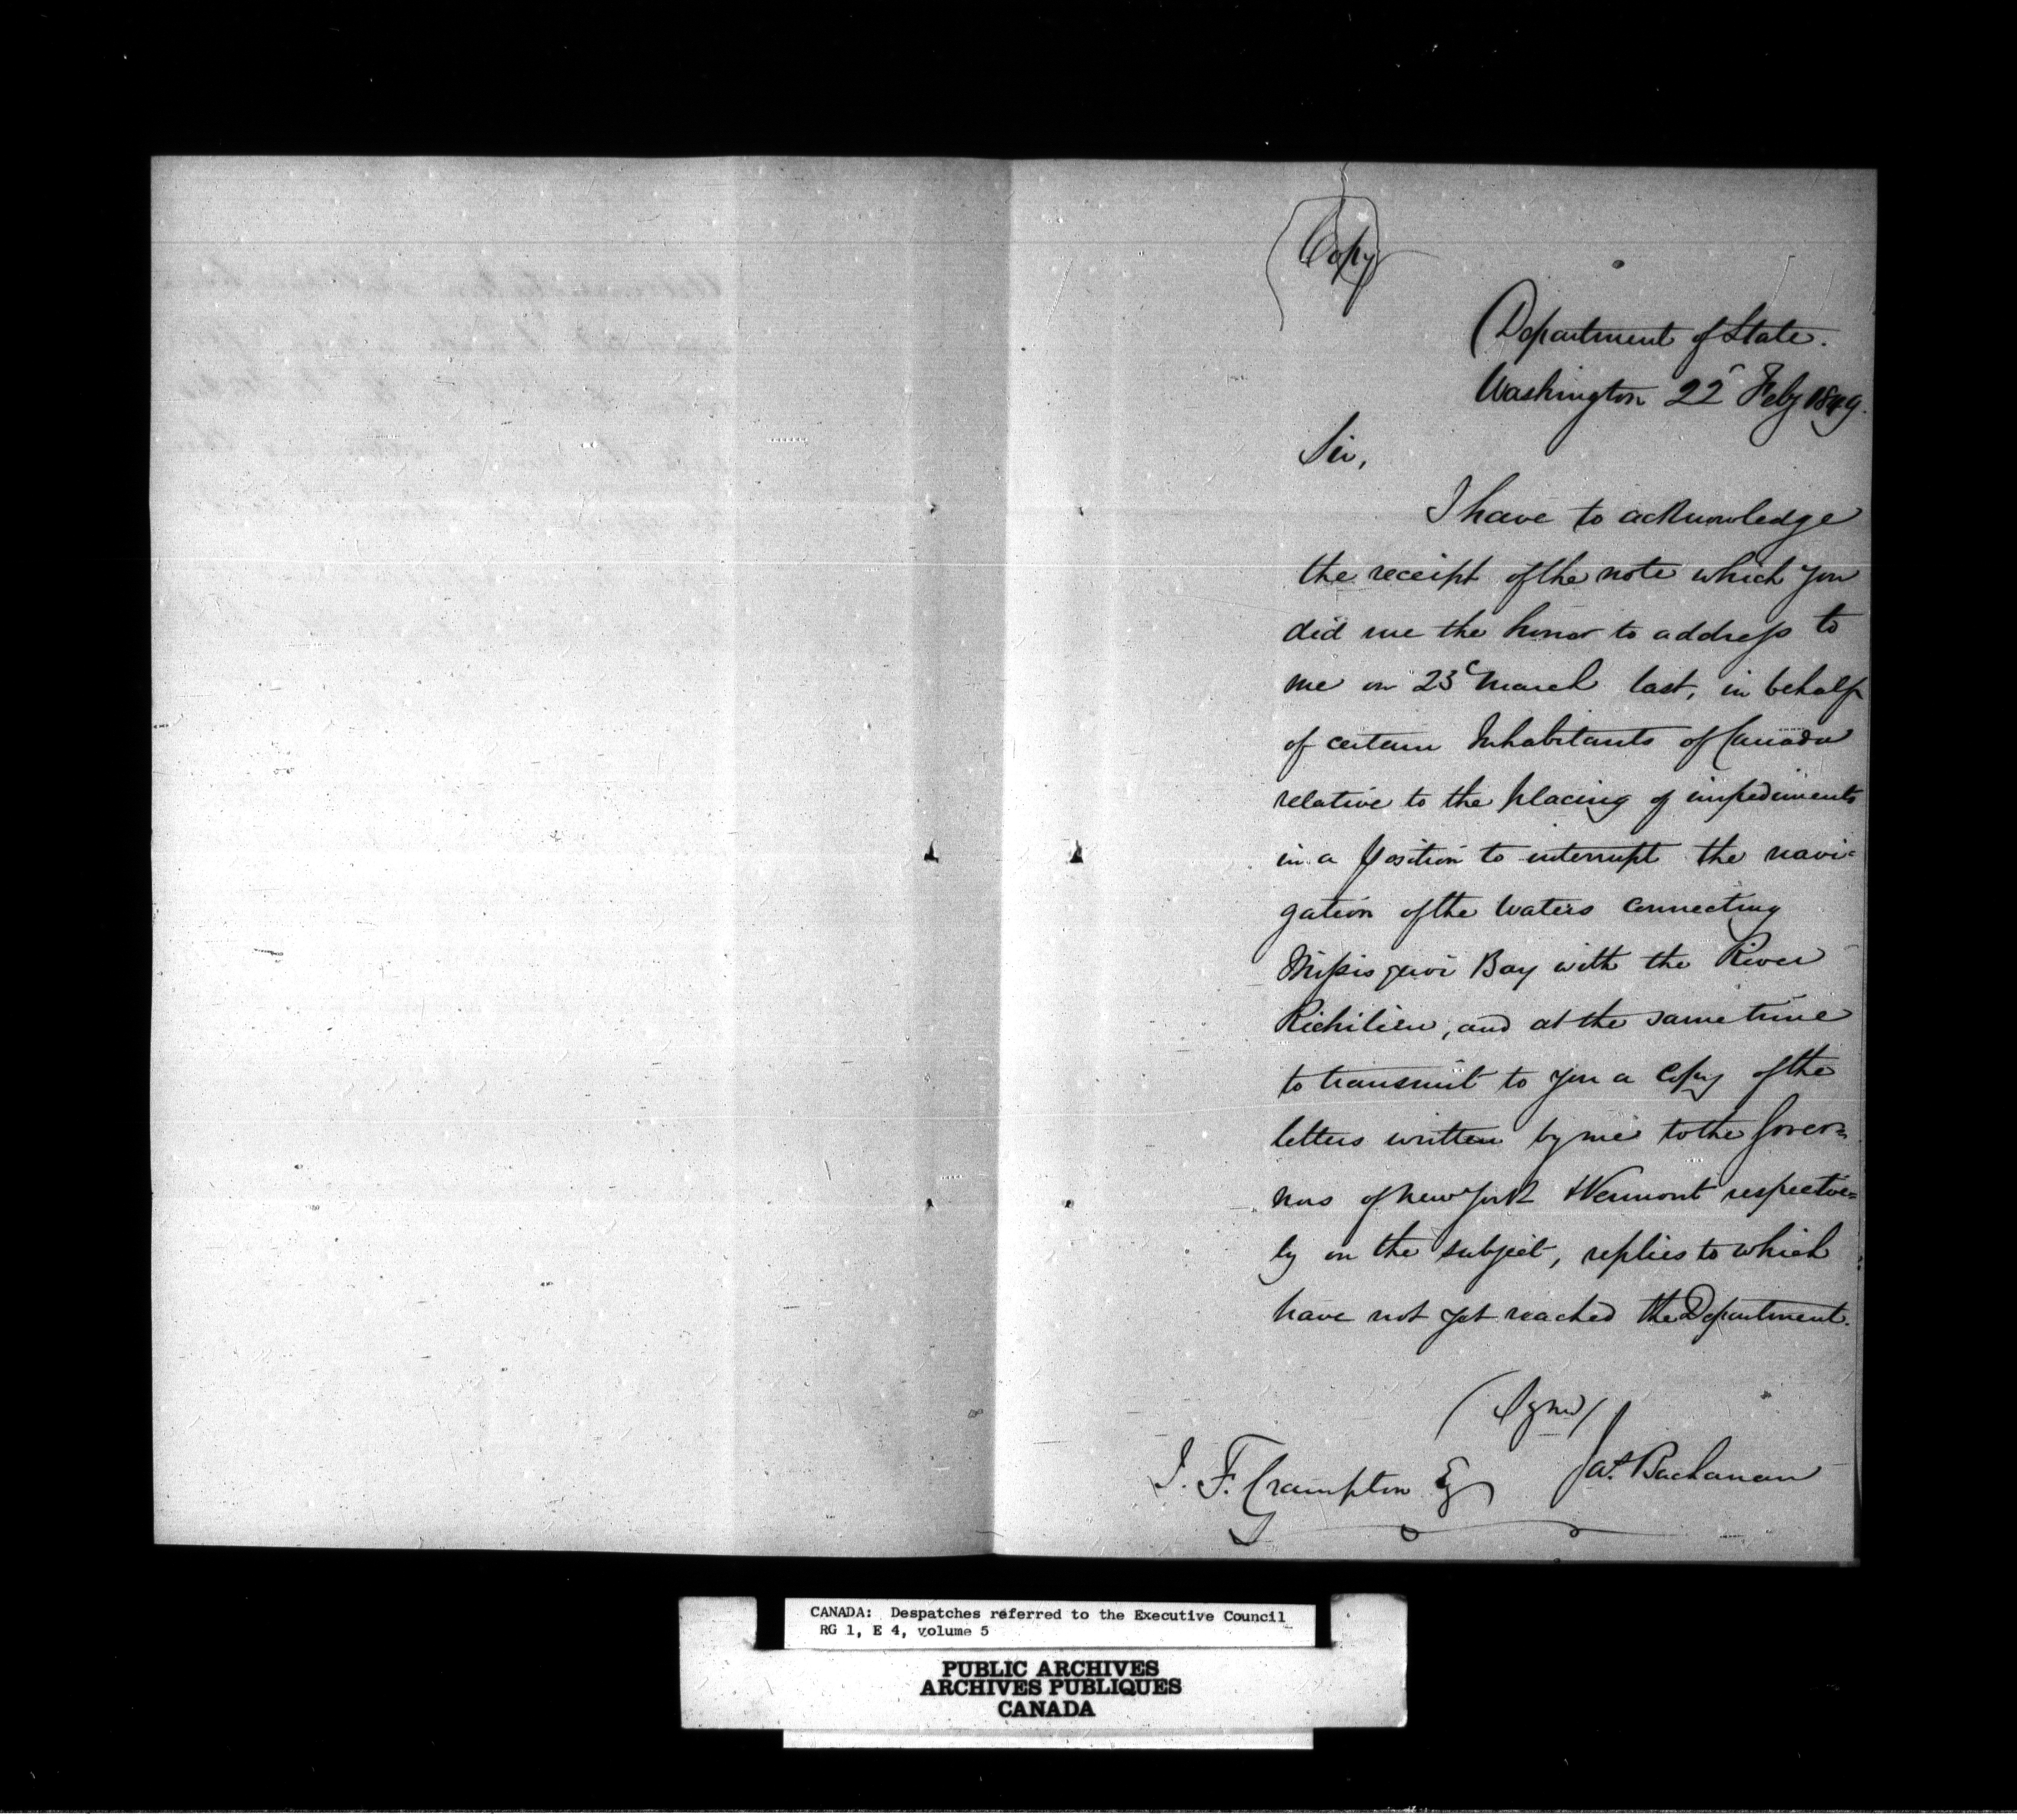 Copy
Department of State.
Washington 22 Feby 1849.
Sir,
I have to acknowledge
the receipt of the note which you
did me the honor to address to
me on 23d March last, in behalf
of certain Inhabitants of Canada
relative to the placing of impediments
in a position to interrupt the navi-
gation of the Waters connecting
Missisquoi Bay with the River
Richilieu, and at the same time
to transmit to you a Copy of the
letters written by me to the Gover=
nors of New York & Vermont respective=
ly on the subject, replies to which
have not yet reached the Department.
(Signed)
Jas. Buchanan
J. F. Crampton Esq
CANADA: Despatches referred to the Executive Council
RG 1, E 4, volume 5
PUBLIC ARCHIVES
ARCHIVES PUBLIQUES
CANADA